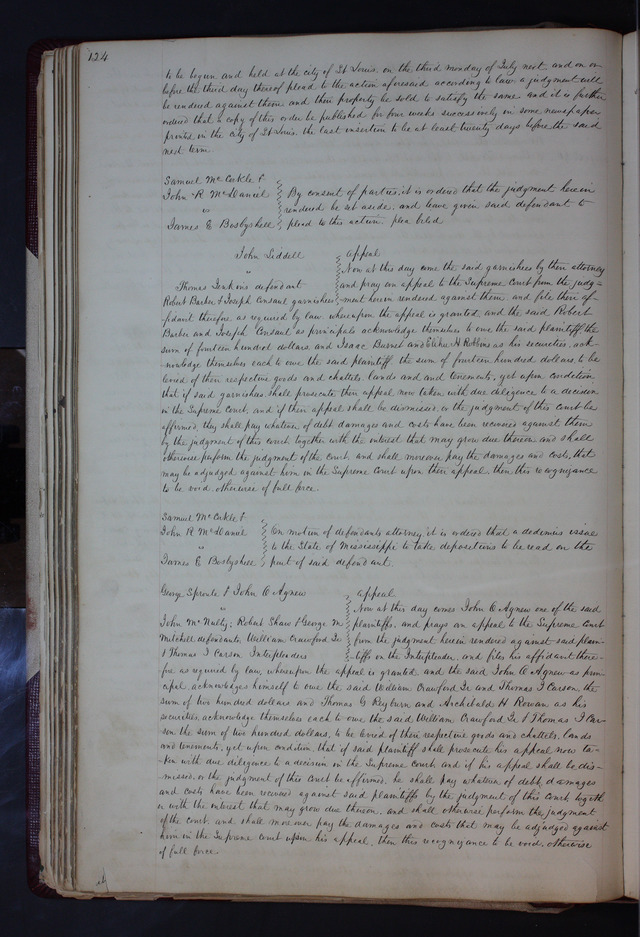 124
to be begun and held at the city of St Louis on the third monday of July next and on or
before the third day thereof plead to the action aforesaid according to law a judgment will
be rendered against them and their property be sold to satisfy the same and it is further
ordered that a copy of this order be published for four weeks successively in some newspaper
printed in the city of St Louis, the last insertion to be at least twenty days before the said
next term.
Samuel Mc Corkle &
John R McDaniel
vs
James E Bosbyshell
By consent of parties, it is ordered that the judgment herein
rendered be set aside, and leave given said defendant to
plead to this action. plea filed
John Liddell
vs
Thomas Jenkins defendant
Robert Barber & Joseph Consaul garnishees
Appeal
Now at this day come the said garnishees by their attorney
and pray an appeal to the Supreme Court from the judg-
ment herein rendered against them, and file their af-
fidavit therefore as required by law whereupon the appeal is granted, and the said Robert
Barber and Joseph Consaul as principals acknowledge themselves to owe the said plaintiff the
sum of fourteen hundred dollars, and Isaac Burnet and H Robbins as his securities, ack-
nowledge themselves each to owe the said plaintiff the sum of fourteen hundred dollars, to be
levied of their respective goods and chattels, lands and and tenements, yet upon condition
that if said garnishees shall prosecute their appeal now taken with due diligence to a decision
in the Supreme Court, and if their appeal shall be dismissed, or the judgment of this court be
affirmed, they shall pay whatever of debt damages and costs have been recovered against them
by the judgment of this court together with the interest that may grow due thereon and shall
otherwise perform the judgment of the court, and shall moreover pay the damages and costs, that
may be adjudged against him in the Supreme Court upon their appeal, then this recognizance
to be void, otherwise of full force.
Samuel Mc Corkle &
John R McDaniel
vs
James E Bosbyshell
On motion of defendants attorney it is ordered that a dedimus issue
to the State of Mississippi to take depositions to be read on the
part of said defendant.
George Sproule & John O Agnew
vs
John McNulty, Robert Shaw & George M
Mitchell defendants, William Crawford Jr
& Thomas J Carson Interpleaders
Appeal
Now at this day comes John O Agnew one of the said
plaintiffs, and prays an appeal to the Supreme Court
from the judgment herein rendered against said plain-
tiffs on the Interpleader, and files his affidavit there-
fore as required by law, whereupon the appeal is granted, and the said John O Agnew as prin-
cipal acknowledges himself to owe the said William Crawford Jr and Thomas J Carson, the
sum of two hundred dollars and Thomas G Reyburn and Archibald H Rowan as his
securities acknowledge themselves each to owe the said William Crawford Jr & Thomas J Car-
son the sum of two hundred dollars, to be levied of their respective goods and chattels, lands
and tenements, yet upon condition, that if said plaintiff shall prosecute his appeal now ta-
ken with due diligence to a decision in the Supreme court, and if his appeal shall be dis-
missed, or the judgment of this court be affirmed, he shall pay whatever of debt, damages
and costs have been recovered against said plaintiffs by the judgment of this court togeth
er with the interest that may grow due thereon, and shall otherwise perform the judgment
of the court, and shall moreover pay the damages and costs that may be adjudged against
him in the Supreme court upon his appeal, then this recognizance to be void, otherwise
of full force.